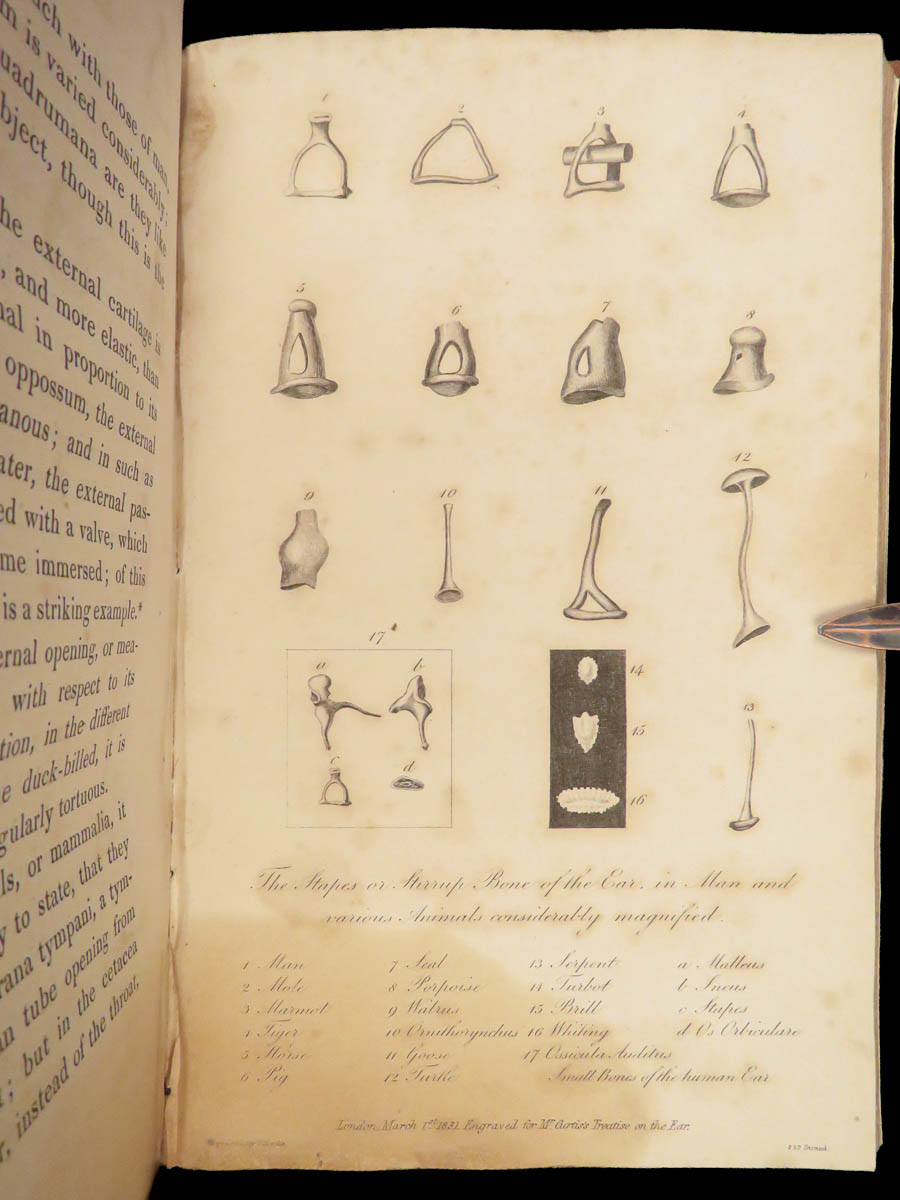 ch with those of man,
is varied considerably;
uadrumana are they like
bject, though this is the
he external cartilage is
, and more elastic, than
nal in proportion to its
oppossum, the external
anous; and in such as
ater, the external pas-
ed with a valve, which
me immersed; of this
is a striking example.*
ernal opening, or mea-
with respect to its
tion, in the different
e duck-billed, it is
gularly tortuous.
ls, or mammalia, it
y to state, that they
rana tympani, a tym-
n tube opening from
; but in the cetacea
r, instead of the throat,
1 2 3 4
5 6 7 8
9 10 11 12
17
a b
14
15
13
c d
16
The Stapes or Stirrup Bone of the Ear, in Man and
various Animals considerably magnified.
1 Man 7 Seal 13 Serpent a Malleus
2 Mole 8 Porpoise 14 Turbot b Incus
3 Marmot 9 Walrus 15 Brill c Stapes
4 Tiger 10 Ornithorynchus 16 Whiting d Os Orbiculare
5 Horse 11 Goose 17 Ossicula Auditus
6 Pig 12 Small Bones of the human Ear
London, March 1st 1831. Engraved for Mr. Curtis's Treatise on the Ear.